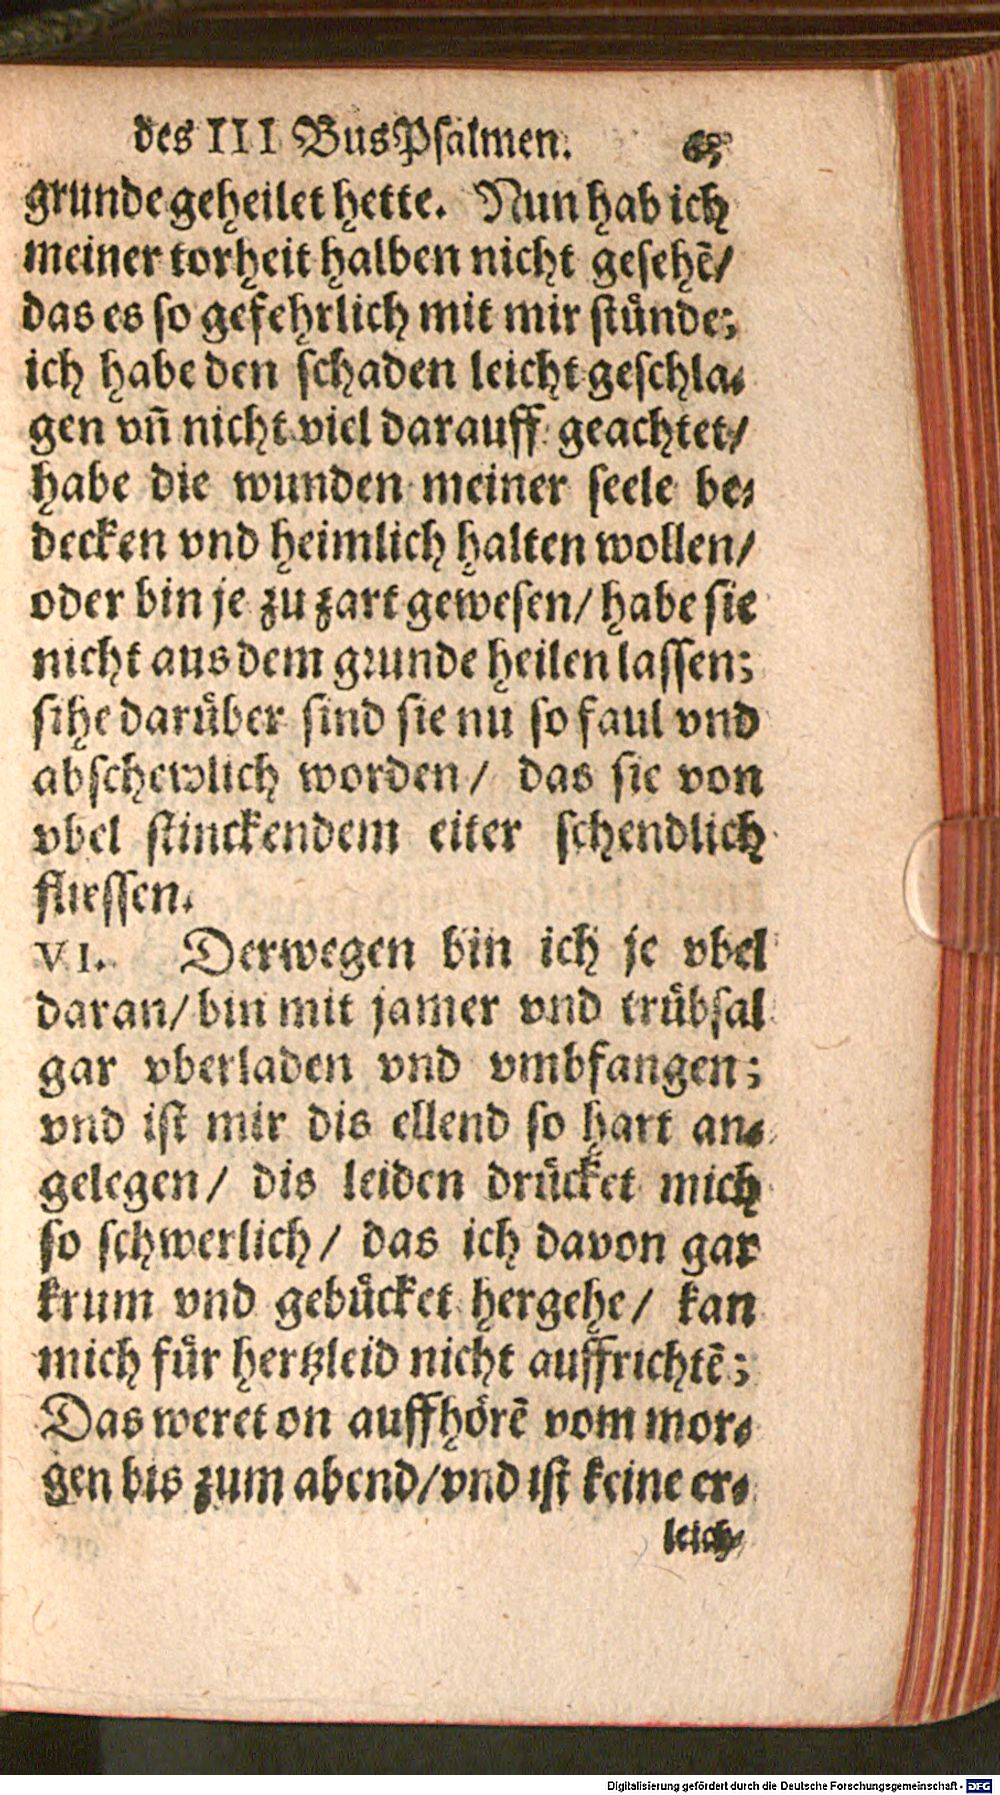 des III BusPsalmen.
grunde geheilet hette. Nun hab ich
meiner torheit halben nicht gesehē/
das es so gefehrlich mit mir stůnde;
ich habe den schaden leicht geschla⸗
gen vn̄ nicht viel darauff geachtet/
habe die wunden meiner seele be⸗
decken vnd heimlich halten wollen/
oder bin je zu zart gewesen/ habe sie
nicht aus dem grunde heilen lassen;
sihe darůber sind sie nu so faul vnd
abschewlich worden/ das sie von
vbel stinckendem eiter schendlich
fliessen.
VI. Derwegen bin ich je vbel
daran/ bin mit jamer vnd trůbsal
gar vberladen vnd vmbfangen;
vnd ist mir dis ellend so hart an⸗
gelegen/ dis leiden drůcket mich
so schwerlich/ das ich davon gar
krum vnd gebůcket hergehe/ kan
mich fůr hertzleid nicht auffrichtē;
Das weret on auffhörē vom mor⸗
gen bis zum abend/ vnd ist keine er⸗
leich⸗
Digitalisierung gefördert durch die Deutsche Forschungsgemeinschaft - DFG